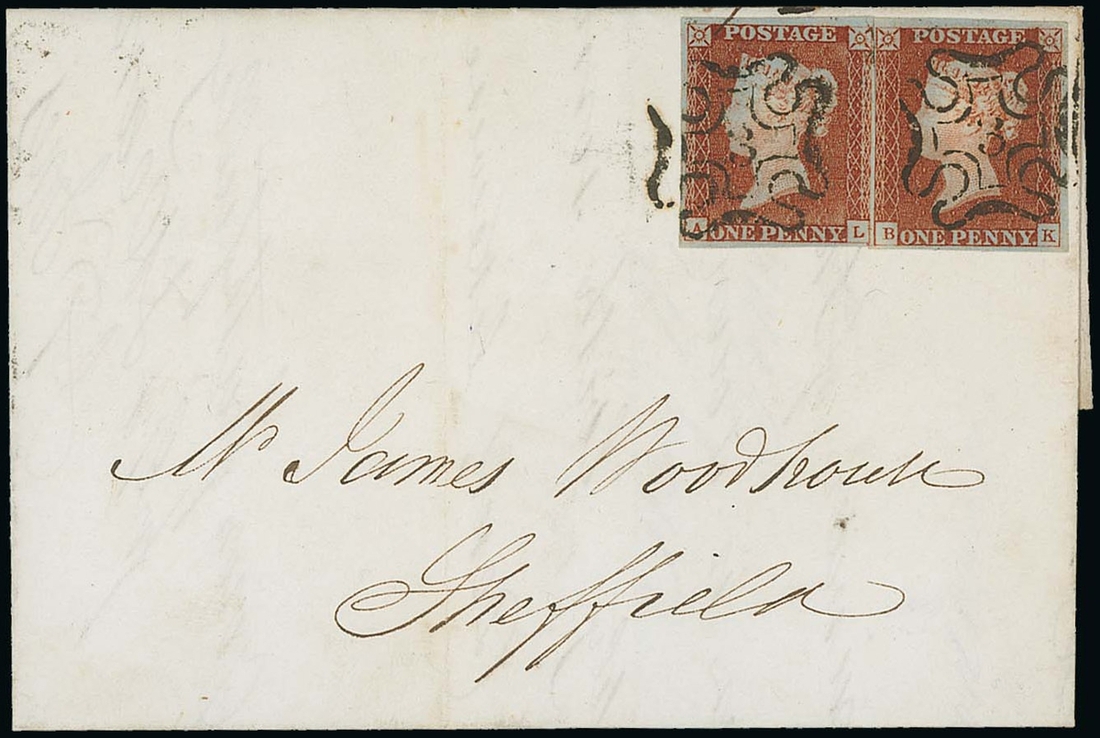 POSTAGE POSTAGE
3 3
A ONE PENNY L B ONE PENNY K
Mr James Woodhouse
Sheffield